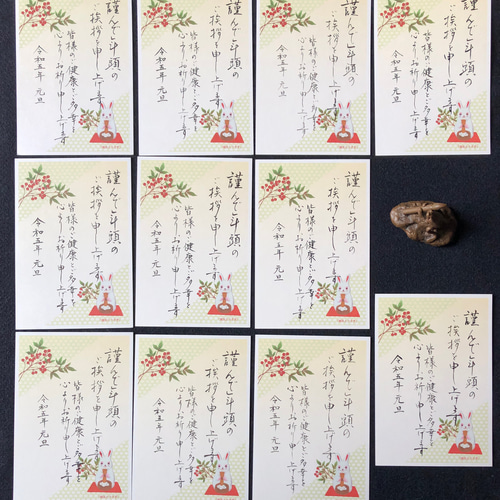 謹んで年頭の
ご挨拶を申し上げます
皆様のご健康とご多幸を
心よりお祈り申し上げます
令和五年 元旦
謹んで年頭の
ご挨拶を申し上げます
皆様のご健康とご多幸を
心よりお祈り申し上げます
令和五年 元旦
謹んで年頭の
ご挨拶を申し上げます
皆様のご健康とご多幸を
心よりお祈り申し上げます
令和五年 元旦
謹んで年頭の
ご挨拶を申し上げます
皆様のご健康とご多幸を
心よりお祈り申し上げます
令和五年 元旦
謹んで年頭の
ご挨拶を申し上げます
皆様のご健康とご多幸を
心よりお祈り申し上げます
令和五年 元旦
謹んで年頭の
ご挨拶を申し上げます
皆様のご健康とご多幸を
心よりお祈り申し上げます
令和五年 元旦
謹んで年頭の
ご挨拶を申し上げます
皆様のご健康とご多幸を
心よりお祈り申し上げます
令和五年 元旦
謹んで年頭の
ご挨拶を申し上げます
皆様のご健康とご多幸を
心よりお祈り申し上げます
令和五年 元旦
謹んで年頭の
ご挨拶を申し上げます
皆様のご健康とご多幸を
心よりお祈り申し上げます
令和五年 元旦
謹んで年頭の
ご挨拶を申し上げます
皆様のご健康とご多幸を
心よりお祈り申し上げます
令和五年 元旦
謹んで年頭の
ご挨拶を申し上げます
皆様のご健康とご多幸を
心よりお祈り申し上げます
令和五年 元旦